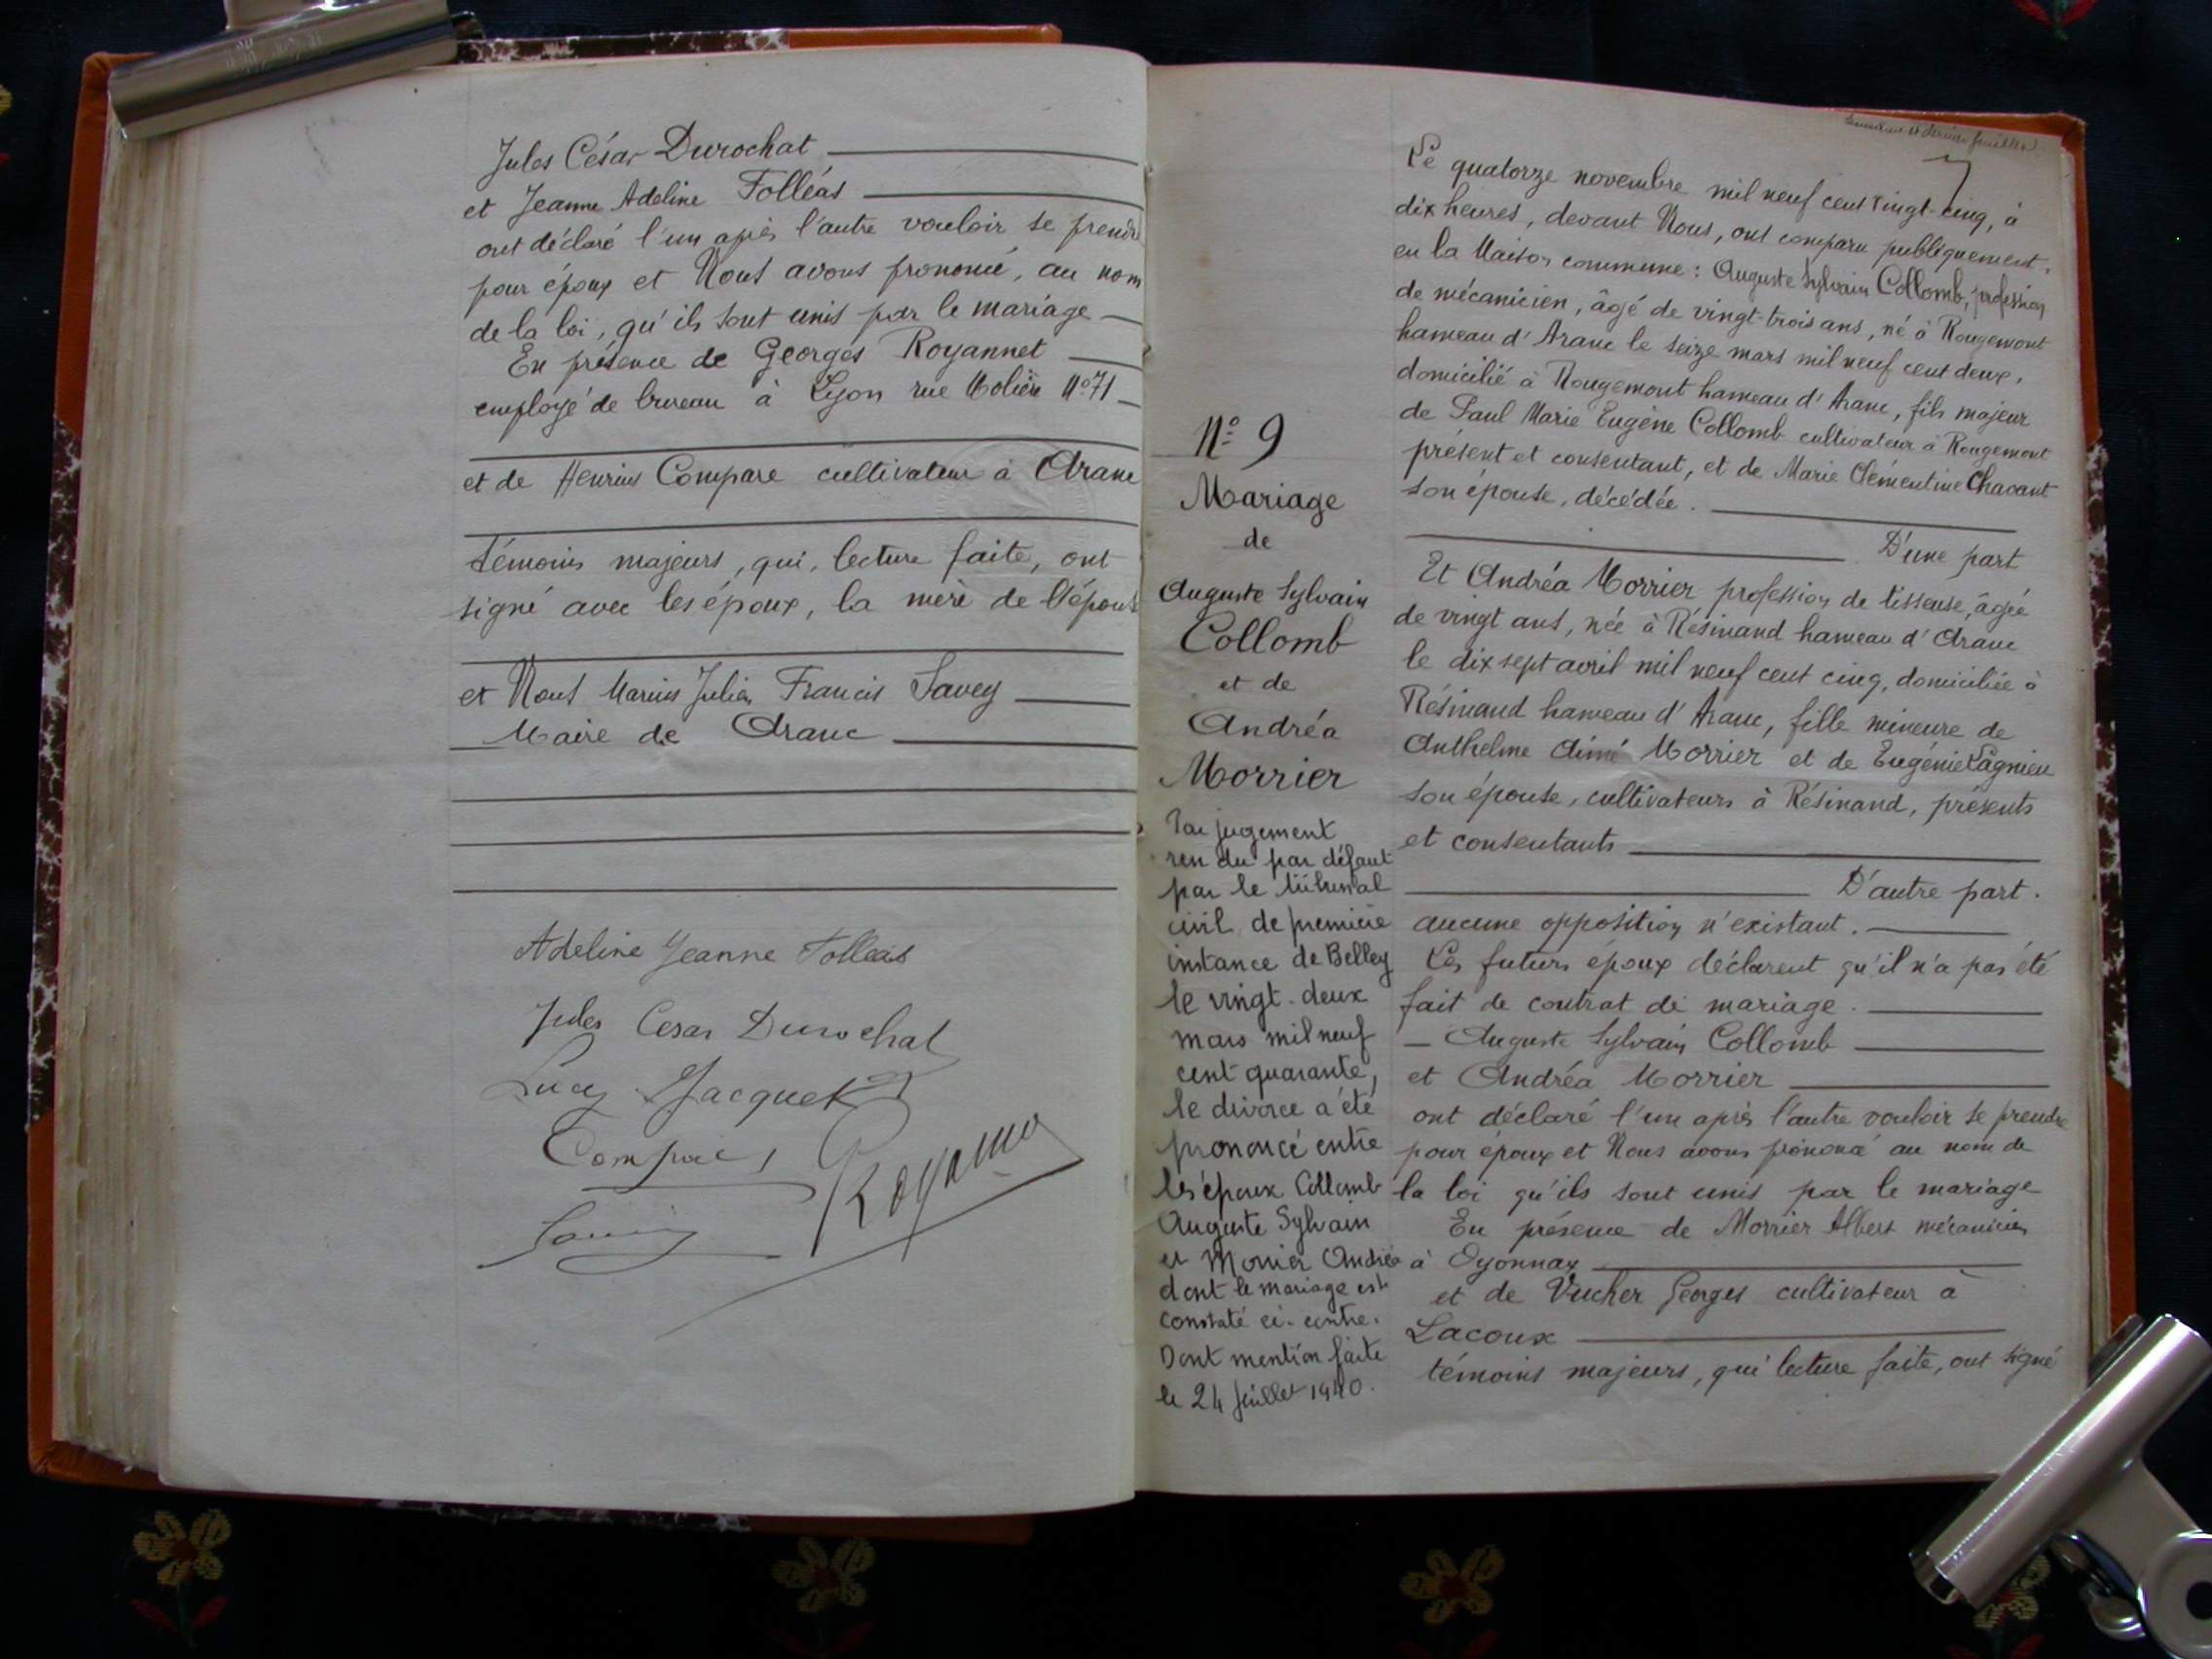 Jules César Durochat
et Jeanne Adeline Folléas
ont déclaré l'un après l'autre vouloir se prendre
pour époux et Nous avons prononcé, au nom
de la loi, qu'ils sont unis par le mariage
En présence de Georges Royannet
employé de bureau à Lyon rue Molière N°71
et de Henrius Compare cultivateur à Aranc
témoins majeurs, qui, lecture faite, ont
signé avec les époux, la mère de l'épouse
et Nous Marius Julien Francis Savey
Maire de Aranc
Adeline Jeanne Folleas
Jules Cesar Durochat
Lucy Jacquet
Compare
N° 9
Mariage
de
Auguste Sylvain
Collomb
et de
Andréa
Morrier
Par jugement
rendu par défaut
par le tribunal
civil de première
instance de Belley
le vingt-deux
mars mil neuf
cent quarante,
le divorce a été
prononcé entre
les époux Collomb
Auguste Sylvain
et Morrier Andréa
dont le mariage est
constaté ci-contre.
Dont mention faite
le 24 juillet 1940.
Le quatorze novembre mil neuf cent vingt-cinq, à
dix heures, devant Nous, ont comparu publiquement,
en la Maison commune : Auguste Sylvain Collomb, profession
de mécanicien, âgé de vingt-trois ans, né à Rougemont
hameau d'Aranc le seize mars mil neuf cent deux,
domicilié à Rougemont hameau d'Aranc, fils majeur
de Paul Marie Eugène Collomb cultivateur à Rougemont
présent et consentant, et de Marie Clémentine Chavant
son épouse, décédée.
D'une part
Et Andréa Morrier profession de tisseuse, âgée
de vingt ans, née à Résinand hameau d'Aranc
le dix sept avril mil neuf cent cinq, domiciliée à
Résinand hameau d'Aranc, fille mineure de
Anthelme Aimé Morrier et de Eugénie Lagnieu
son épouse, cultivateurs à Résinand, présents
et consentants
D'autre part.
aucune opposition n'existant.
Les futurs époux déclarent qu'il n'a pas été
fait de contrat de mariage.
Auguste Sylvain Collomb
et Andréa Morrier
ont déclaré l'un après l'autre vouloir se prendre
pour époux et Nous avons prononcé au nom de
la loi qu'ils sont unis par le mariage
En présence de Morrier Albert mécanicien
à Oyonnax
et de Vucher Georges cultivateur à
Lacoux
témoins majeurs, qui lecture faite, ont signé